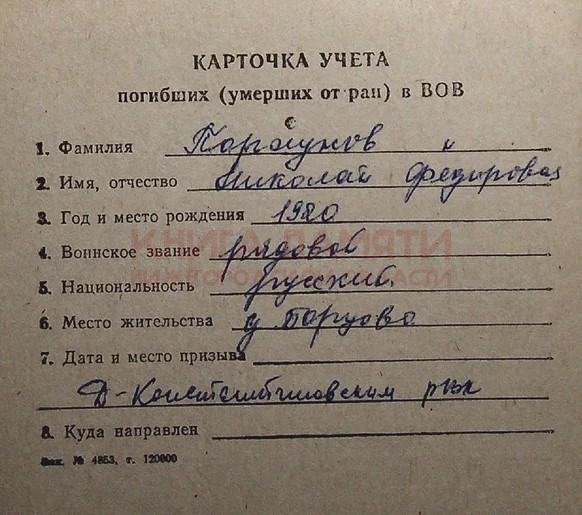 КАРТОЧКА УЧЕТА
погибших (умерших от ран) в ВОВ
1. Фамилия
2. Имя, отчество Николай Федорович
3. Год и место рождения 1920
4. Воинское звание рядовой
5. Национальность русский
6. Место жительства д Борцово
7. Дата и место призыва
Д-Константиновским рвк
8. Куда направлен
Зак. № 4853, т. 120000
КНИГА ПАМЯТИ
НИЖЕГОРОДСКОЙ ОБЛАСТИ